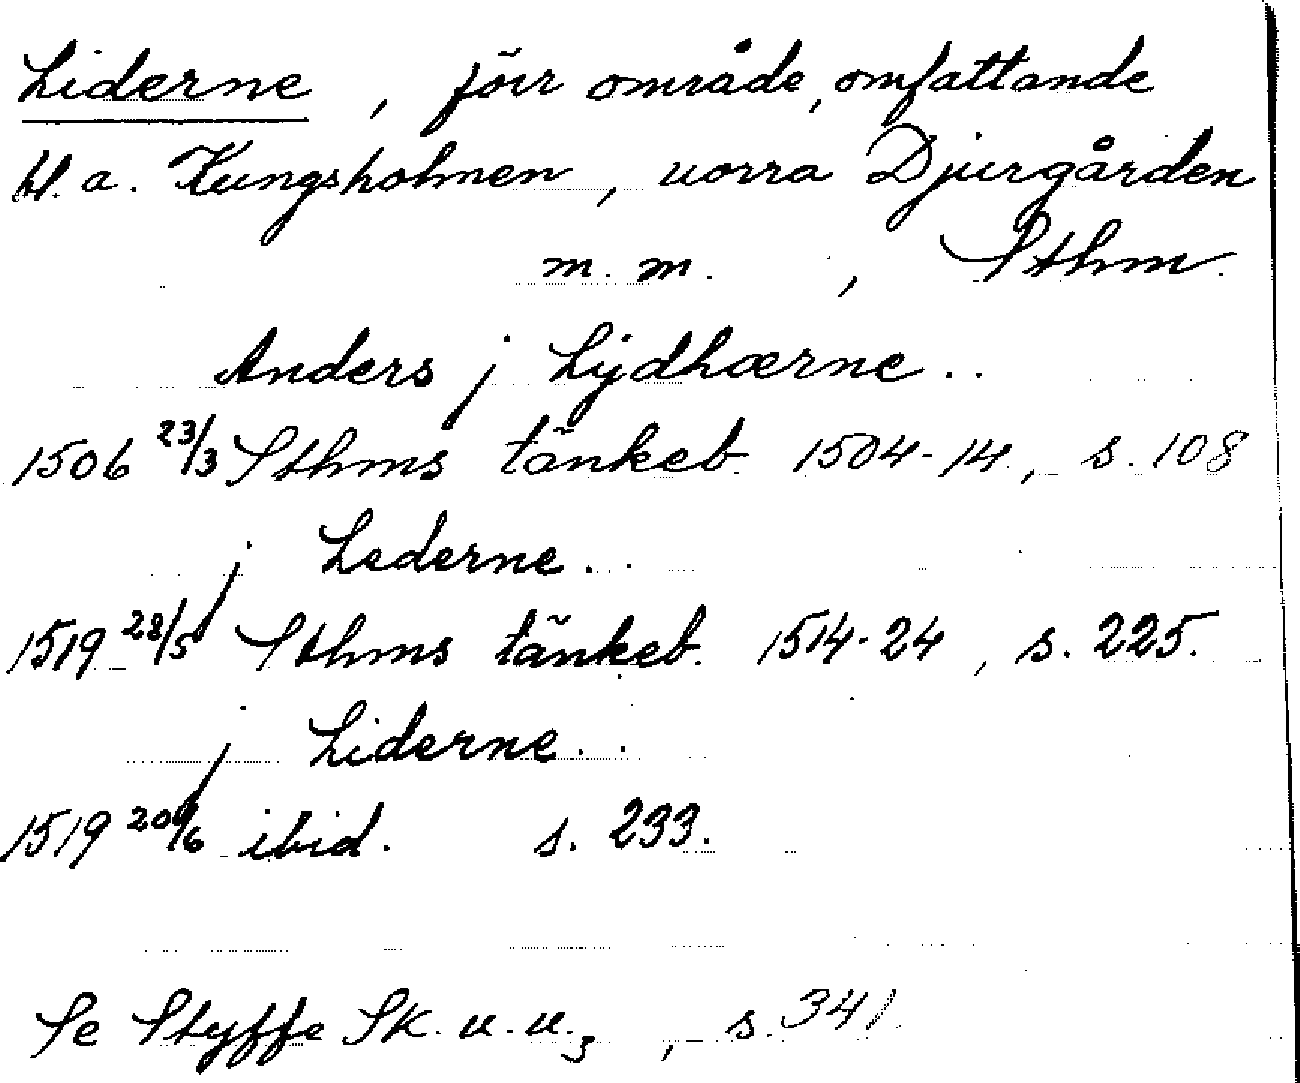 Liderne, förr område, omfattande
bl. a. Kungsholmen, norra Djurgården
m. m., Sthm.
Anders j Lydhærne..
1506 23/3 Sthms tänkeb. 1504-14, s. 108
j Lederne..
1519 28/5 Sthms tänkeb. 1514-24, s. 225.
j Liderne..
1519 20/6 ibid. s. 233.
Se Styffe Sk. u. u.3, s. 341.